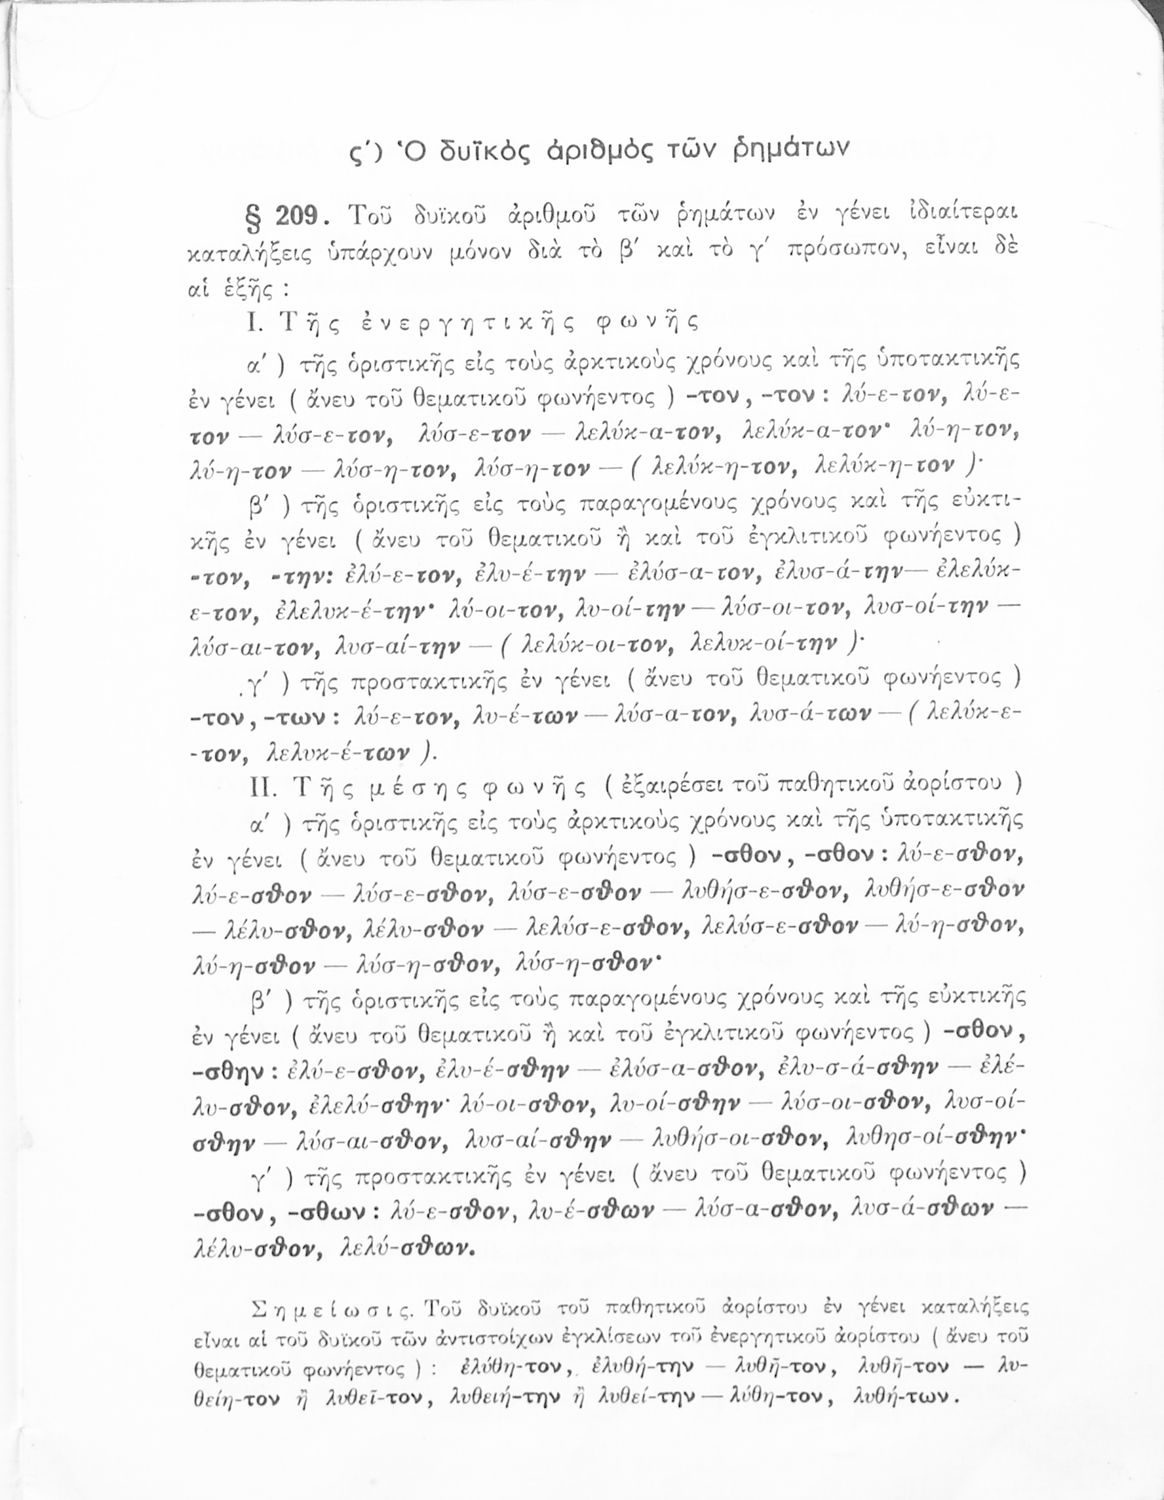 ς′) Ὁ δυϊκὸς ἀριθμὸς τῶν ῥημάτων
§ 209. Τοῦ δυϊκοῦ ἀριθμοῦ τῶν ῥημάτων ἐν γένει ἰδιαίτεραι
καταλήξεις ὑπάρχουν μόνον διὰ τὸ β′ καὶ τὸ γ′ πρόσωπον, εἶναι δὲ
αἱ ἑξῆς :
I. Τῆς ἐνεργητικῆς φωνῆς
α′ ) τῆς ὁριστικῆς εἰς τοὺς ἀρκτικοὺς χρόνους καὶ τῆς ὑποτακτικῆς
ἐν γένει ( ἄνευ τοῦ θεματικοῦ φωνήεντος ) -τον, -τον : λύ-ε-τον, λύ-ε-
τον — λύσ-ε-τον, λύσ-ε-τον — λελύκ-α-τον, λελύκ-α-τον· λύ-η-τον,
λύ-η-τον — λύσ-η-τον, λύσ-η-τον — ( λελύκ-η-τον, λελύκ-η-τον )·
β′ ) τῆς ὁριστικῆς εἰς τοὺς παραγομένους χρόνους καὶ τῆς εὐκτι-
κῆς ἐν γένει ( ἄνευ τοῦ θεματικοῦ ἢ καὶ τοῦ ἐγκλιτικοῦ φωνήεντος )
-τον, -την: ἐλύ-ε-τον, ἐλυ-έ-την — ἐλύσ-α-τον, ἐλυσ-ά-την— ἐλελύκ-
ε-τον, ἐλελυκ-έ-την· λύ-οι-τον, λυ-οί-την — λύσ-οι-τον, λυσ-οί-την —
λύσ-αι-τον, λυσ-αί-την — ( λελύκ-οι-τον, λελυκ-οί-την )·
γ′ ) τῆς προστακτικῆς ἐν γένει ( ἄνευ τοῦ θεματικοῦ φωνήεντος )
-τον, -των : λύ-ε-τον, λυ-έ-των — λύσ-α-τον, λυσ-ά-των — ( λελύκ-ε-
-τον, λελυκ-έ-των ).
II. Τῆς μέσης φωνῆς ( ἐξαιρέσει τοῦ παθητικοῦ ἀορίστου )
α′ ) τῆς ὁριστικῆς εἰς τοὺς ἀρκτικοὺς χρόνους καὶ τῆς ὑποτακτικῆς
ἐν γένει ( ἄνευ τοῦ θεματικοῦ φωνήεντος ) -σθον, -σθον : λύ-ε-σθον,
λύ-ε-σθον — λύσ-ε-σθον, λύσ-ε-σθον — λυθήσ-ε-σθον, λυθήσ-ε-σθον
— λέλυ-σθον, λέλυ-σθον — λελύσ-ε-σθον, λελύσ-ε-σθον — λύ-η-σθον,
λύ-η-σθον — λύσ-η-σθον, λύσ-η-σθον·
β′ ) τῆς ὁριστικῆς εἰς τοὺς παραγομένους χρόνους καὶ τῆς εὐκτικῆς
ἐν γένει ( ἄνευ τοῦ θεματικοῦ ἢ καὶ τοῦ ἐγκλιτικοῦ φωνήεντος ) -σθον,
-σθην : ἐλύ-ε-σθον, ἐλυ-έ-σθην — ἐλύσ-α-σθον, ἐλυ-σ-ά-σθην — ἐλέ-
λυ-σθον, ἐλελύ-σθην· λύ-οι-σθον, λυ-οί-σθην — λύσ-οι-σθον, λυσ-οί-
σθην — λύσ-αι-σθον, λυσ-αί-σθην — λυθήσ-οι-σθον, λυθησ-οί-σθην·
γ′ ) τῆς προστακτικῆς ἐν γένει ( ἄνευ τοῦ θεματικοῦ φωνήεντος )
-σθον, -σθων : λύ-ε-σθον, λυ-έ-σθων — λύσ-α-σθον, λυσ-ά-σθων —
λέλυ-σθον, λελύ-σθων.
Σημείωσις. Τοῦ δυϊκοῦ τοῦ παθητικοῦ ἀορίστου ἐν γένει καταλήξεις
εἶναι αἱ τοῦ δυϊκοῦ τῶν ἀντιστοίχων ἐγκλίσεων τοῦ ἐνεργητικοῦ ἀορίστου ( ἄνευ τοῦ
θεματικοῦ φωνήεντος ) : ἐλύθη-τον, ἐλυθή-την — λυθῆ-τον, λυθῆ-τον — λυ-
θείη-τον ἢ λυθεῖ-τον, λυθειή-την ἢ λυθεί-την — λύθη-τον, λυθή-των.